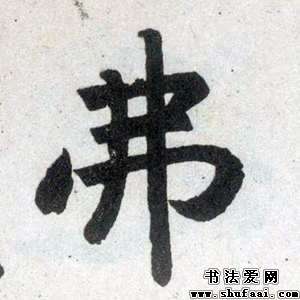 弗
书法爱网
www.shufaai.com